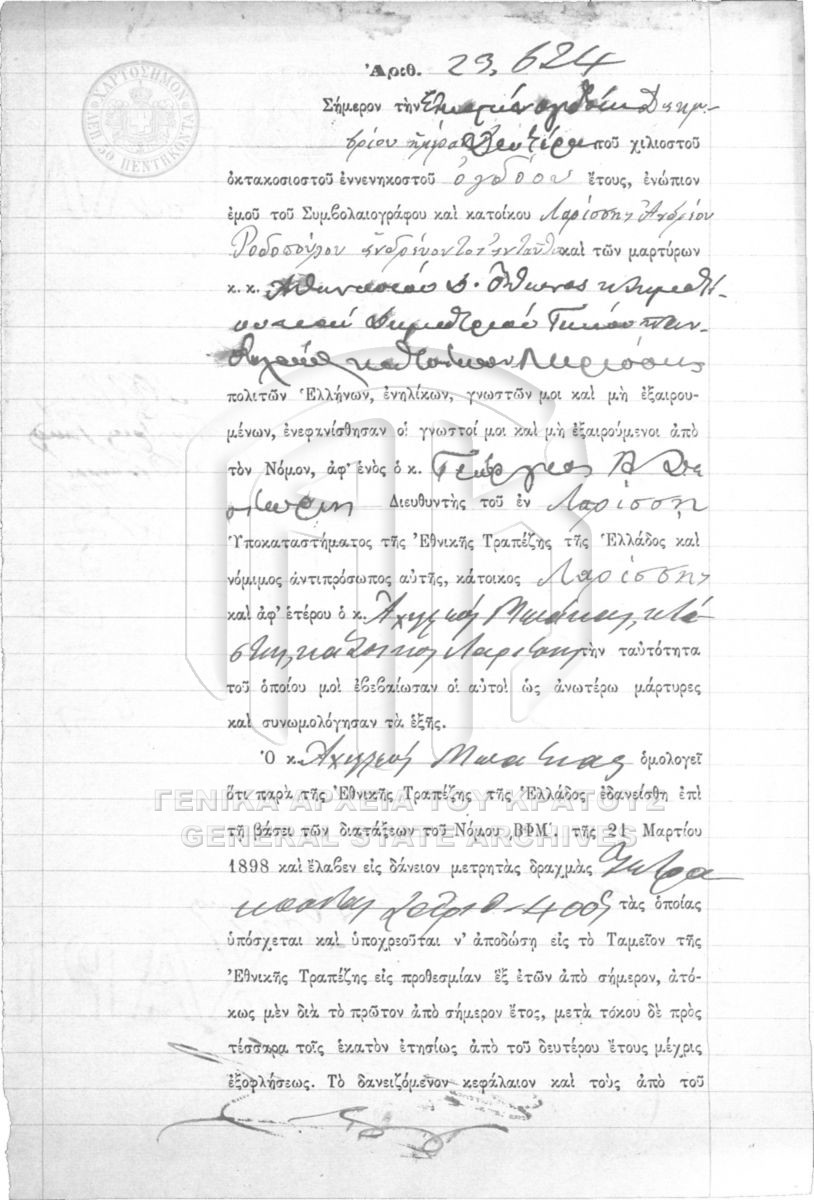 ΧΑΡΤΟΣΗΜΟΝ
ΔΡ. 50 ΠΕΝΤΗΚΟΝΤΑ
Ἀριθ. 29,624
Σήμερον τὴν εἰκοστὴν ὀγδόην Δεκεμ-
βρίου ἡμέραν Δευτέραν τοῦ χιλιοστοῦ
ὀκτακοσιοστοῦ ἐννενηκοστοῦ ὀγδόου ἔτους, ἐνώπιον
ἐμοῦ τοῦ Συμβολαιογράφου καὶ κατοίκου Λαρίσσης Ἀνδρέου
Ροδοπούλου ἑδρεύοντος ἐνταῦθα καὶ τῶν μαρτύρων
κ. κ. Ἀθανασίου Δ.
Δημητρίου
καὶ κατοίκων Λαρίσσης
πολιτῶν Ἑλλήνων, ἐνηλίκων, γνωστῶν μοι καὶ μὴ ἐξαιρου-
μένων, ἐνεφανίσθησαν οἱ γνωστοί μοι καὶ μὴ ἐξαιρούμενοι ἀπὸ
τὸν Νόμον, ἀφ' ἑνὸς ὁ κ. Γεώργιος
Διευθυντὴς τοῦ ἐν Λαρίσσῃ
Ὑποκαταστήματος τῆς Ἐθνικῆς Τραπέζης τῆς Ἑλλάδος καὶ
νόμιμος ἀντιπρόσωπος αὐτῆς, κάτοικος Λαρίσσης
καὶ ἀφ' ἑτέρου ὁ κ. Ἀχιλλεὺς
κάτοικος Λαρίσσης τὴν ταὐτότητα
τοῦ ὁποίου μοὶ ἐβεβαίωσαν οἱ αὐτοὶ ὡς ἀνωτέρω μάρτυρες
καὶ συνωμολόγησαν τὰ ἑξῆς.
Ὁ κ. Ἀχιλλεὺς ὁμολογεῖ
ὅτι παρὰ τῆς Ἐθνικῆς Τραπέζης τῆς Ἑλλάδος ἐδανείσθη ἐπὶ
ΓΕΝΙΚΑ ΑΡΧΕΙΑ ΤΟΥ ΚΡΑΤΟΥΣ
τῇ βάσει τῶν διατάξεων τοῦ Νόμου ͵ΒΦΜ΄. τῆς 21 Μαρτίου
GENERAL STATE ARCHIVES
1898 καὶ ἔλαβεν εἰς δάνειον μετρητὰς δραχμὰς τετρα
κοσίας ἀριθ. 400 τὰς ὁποίας
ὑπόσχεται καὶ ὑποχρεοῦται ν' ἀποδώσῃ εἰς τὸ Ταμεῖον τῆς
Ἐθνικῆς Τραπέζης εἰς προθεσμίαν ἓξ ἐτῶν ἀπὸ σήμερον, ἀτό-
κως μὲν διὰ τὸ πρῶτον ἀπὸ σήμερον ἔτος, μετὰ τόκου δὲ πρὸς
τέσσαρα τοῖς ἑκατὸν ἐτησίως ἀπὸ τοῦ δευτέρου ἔτους μέχρις
ἐξοφλήσεως. Τὸ δανειζόμενον κεφάλαιον καὶ τοὺς ἀπὸ τοῦ